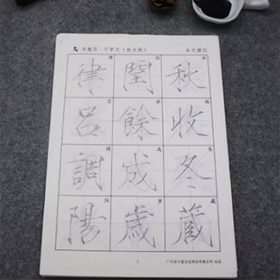 秋收冬藏
閏餘成歲
律呂調陽